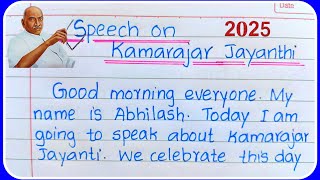 Date
Speech on 2025
Kamarajar Jayanthi
Good morning everyone. My
name is Abhilash. Today I am
going to speak about Kamarajar
Jayanti. We celebrate this day